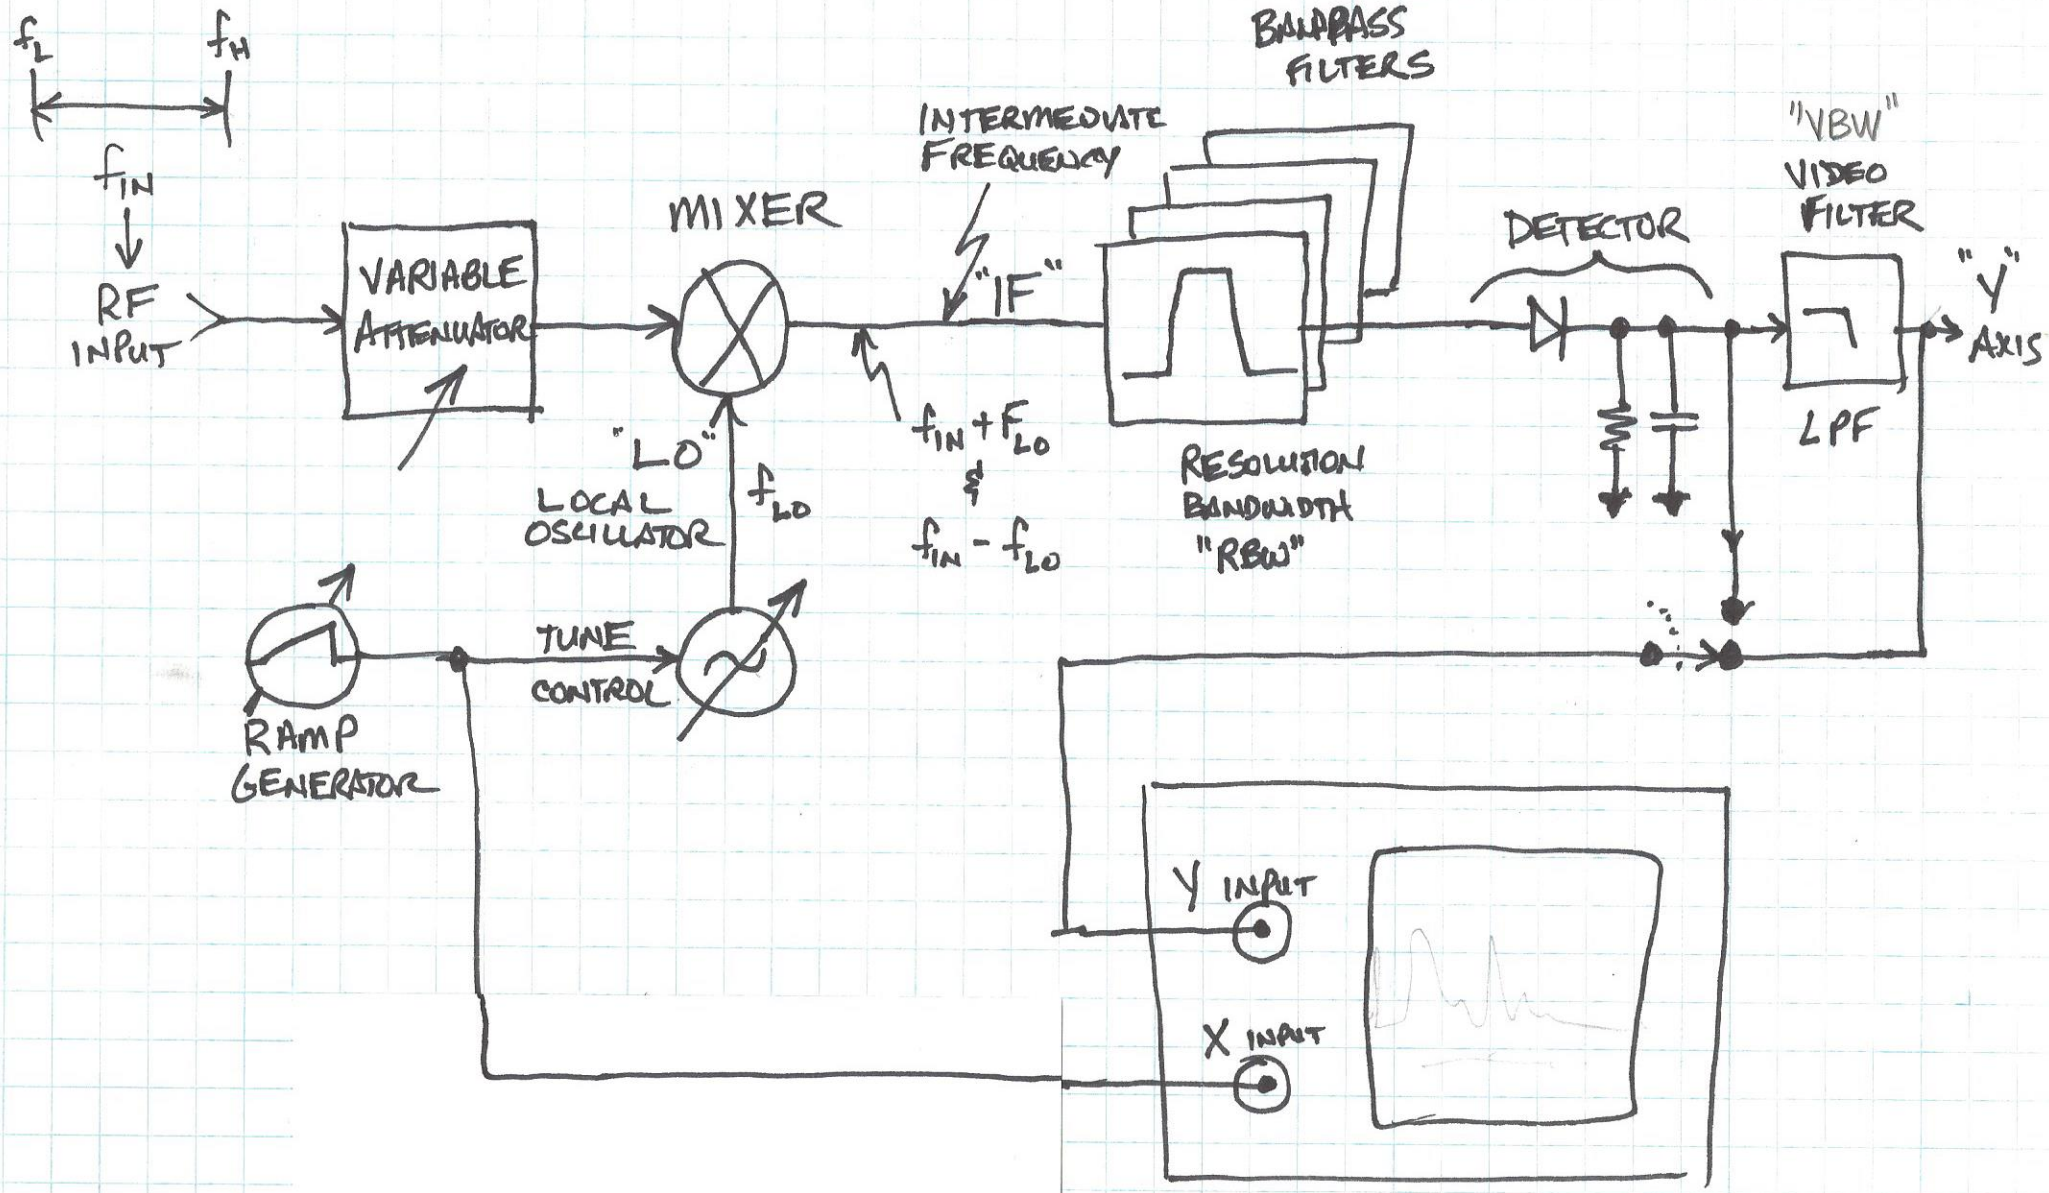 f_L f_H
f_IN
RF
INPUT
VARIABLE
ATTENUATOR
MIXER
"LO"
LOCAL
OSCILLATOR
f_LO
INTERMEDIATE
FREQUENCY
"IF"
f_IN + F_LO
&
f_IN - f_LO
BANDPASS
FILTERS
RESOLUTION
BANDWIDTH
"RBW"
DETECTOR
"VBW"
VIDEO
FILTER
LPF
"Y"
AXIS
RAMP
GENERATOR
TUNE
CONTROL
Y INPUT
X INPUT